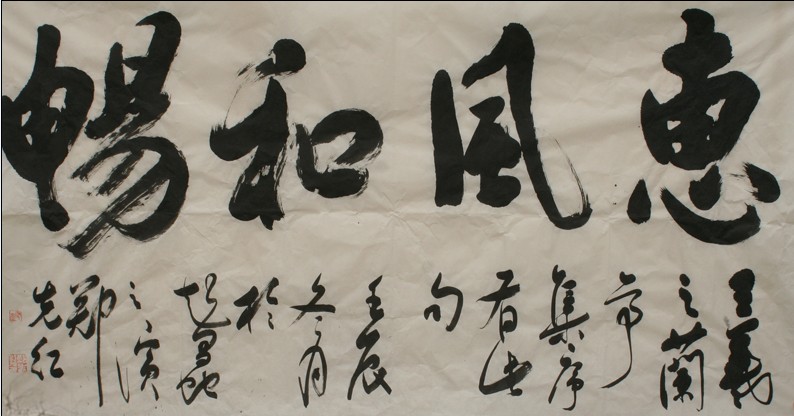 惠風和暢
王羲
之蘭
亭
集序
有此
句
壬辰
冬月
於
之濱
鄭
红